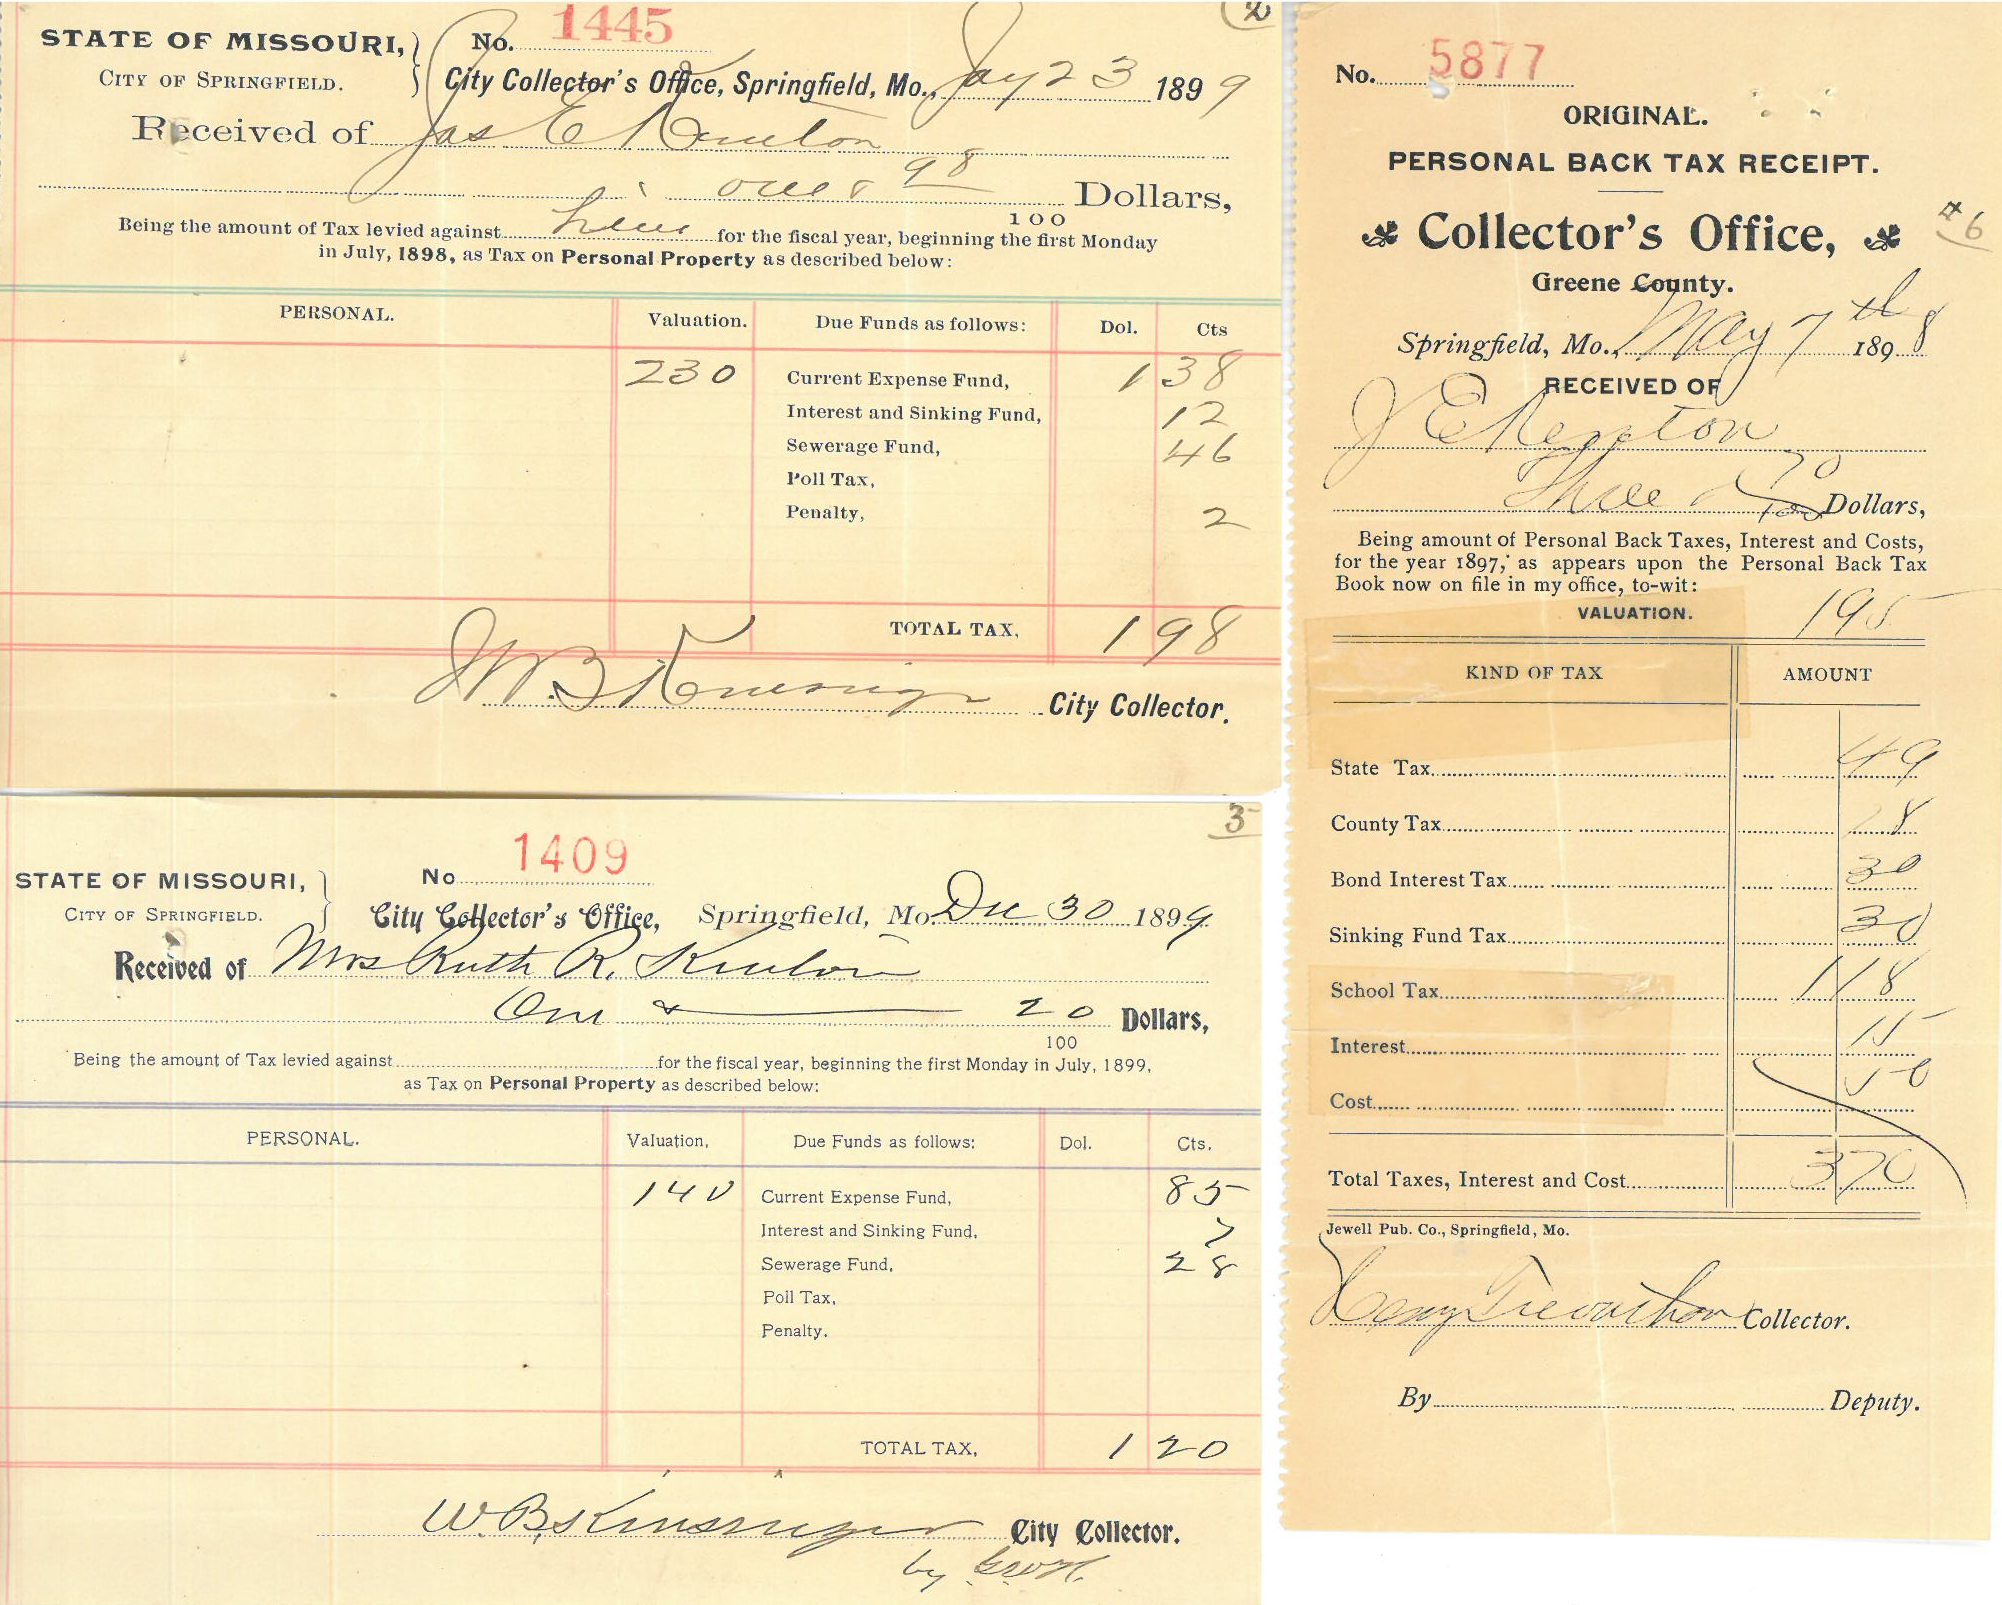 2
STATE OF MISSOURI, No. 1445
CITY OF SPRINGFIELD. City Collector's Office, Springfield, Mo., Jay 23 1899
Received of Jas E Kenton
one & 98 Dollars,
100
Being the amount of Tax levied against him for the fiscal year, beginning the first Monday
in July, 1898, as Tax on Personal Property as described below:
PERSONAL. Valuation. Due Funds as follows: Dol. Cts
230 Current Expense Fund, 1 38
Interest and Sinking Fund, 12
Sewerage Fund, 46
Poll Tax,
Penalty, 2
TOTAL TAX, 1 98
W B Kinsinger City Collector.
3
No 1409
STATE OF MISSOURI,
CITY OF SPRINGFIELD. City Collector's Office, Springfield, Mo. Dec 30 1899
Received of Mrs Ruth R. Kenton
One & 20 Dollars,
100
Being the amount of Tax levied against for the fiscal year, beginning the first Monday in July, 1899,
as Tax on Personal Property as described below:
PERSONAL. Valuation, Due Funds as follows: Dol. Cts.
140 Current Expense Fund, 85
Interest and Sinking Fund, 7
Sewerage Fund, 28
Poll Tax,
Penalty.
TOTAL TAX, 1 20
W. B. Kinsinger City Collector.
by
No. 5877
ORIGINAL.
PERSONAL BACK TAX RECEIPT.
#6
Collector's Office,
Greene County.
Springfield, Mo., May 7th 1898
RECEIVED OF
J E Kenton
Three & 70/100 Dollars,
Being amount of Personal Back Taxes, Interest and Costs,
for the year 1897, as appears upon the Personal Back Tax
Book now on file in my office, to-wit:
VALUATION. 195
KIND OF TAX AMOUNT
State Tax 49
County Tax 8
Bond Interest Tax 30
Sinking Fund Tax 30
School Tax 1 18
Interest 15
Cost 50
Total Taxes, Interest and Cost 3 70
Jewell Pub. Co., Springfield, Mo.
Collector.
By Deputy.